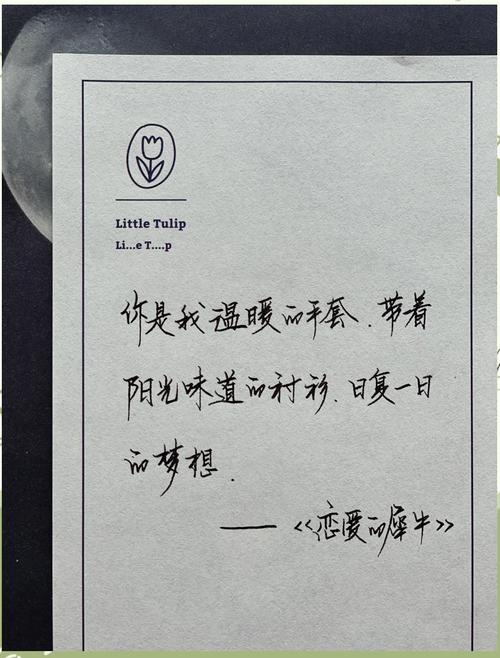 Little Tulip
Li...e T....p
你是我温暖的手套.带着
阳光味道的衬衫.日复一日
的梦想.
——<<恋爱的犀牛>>